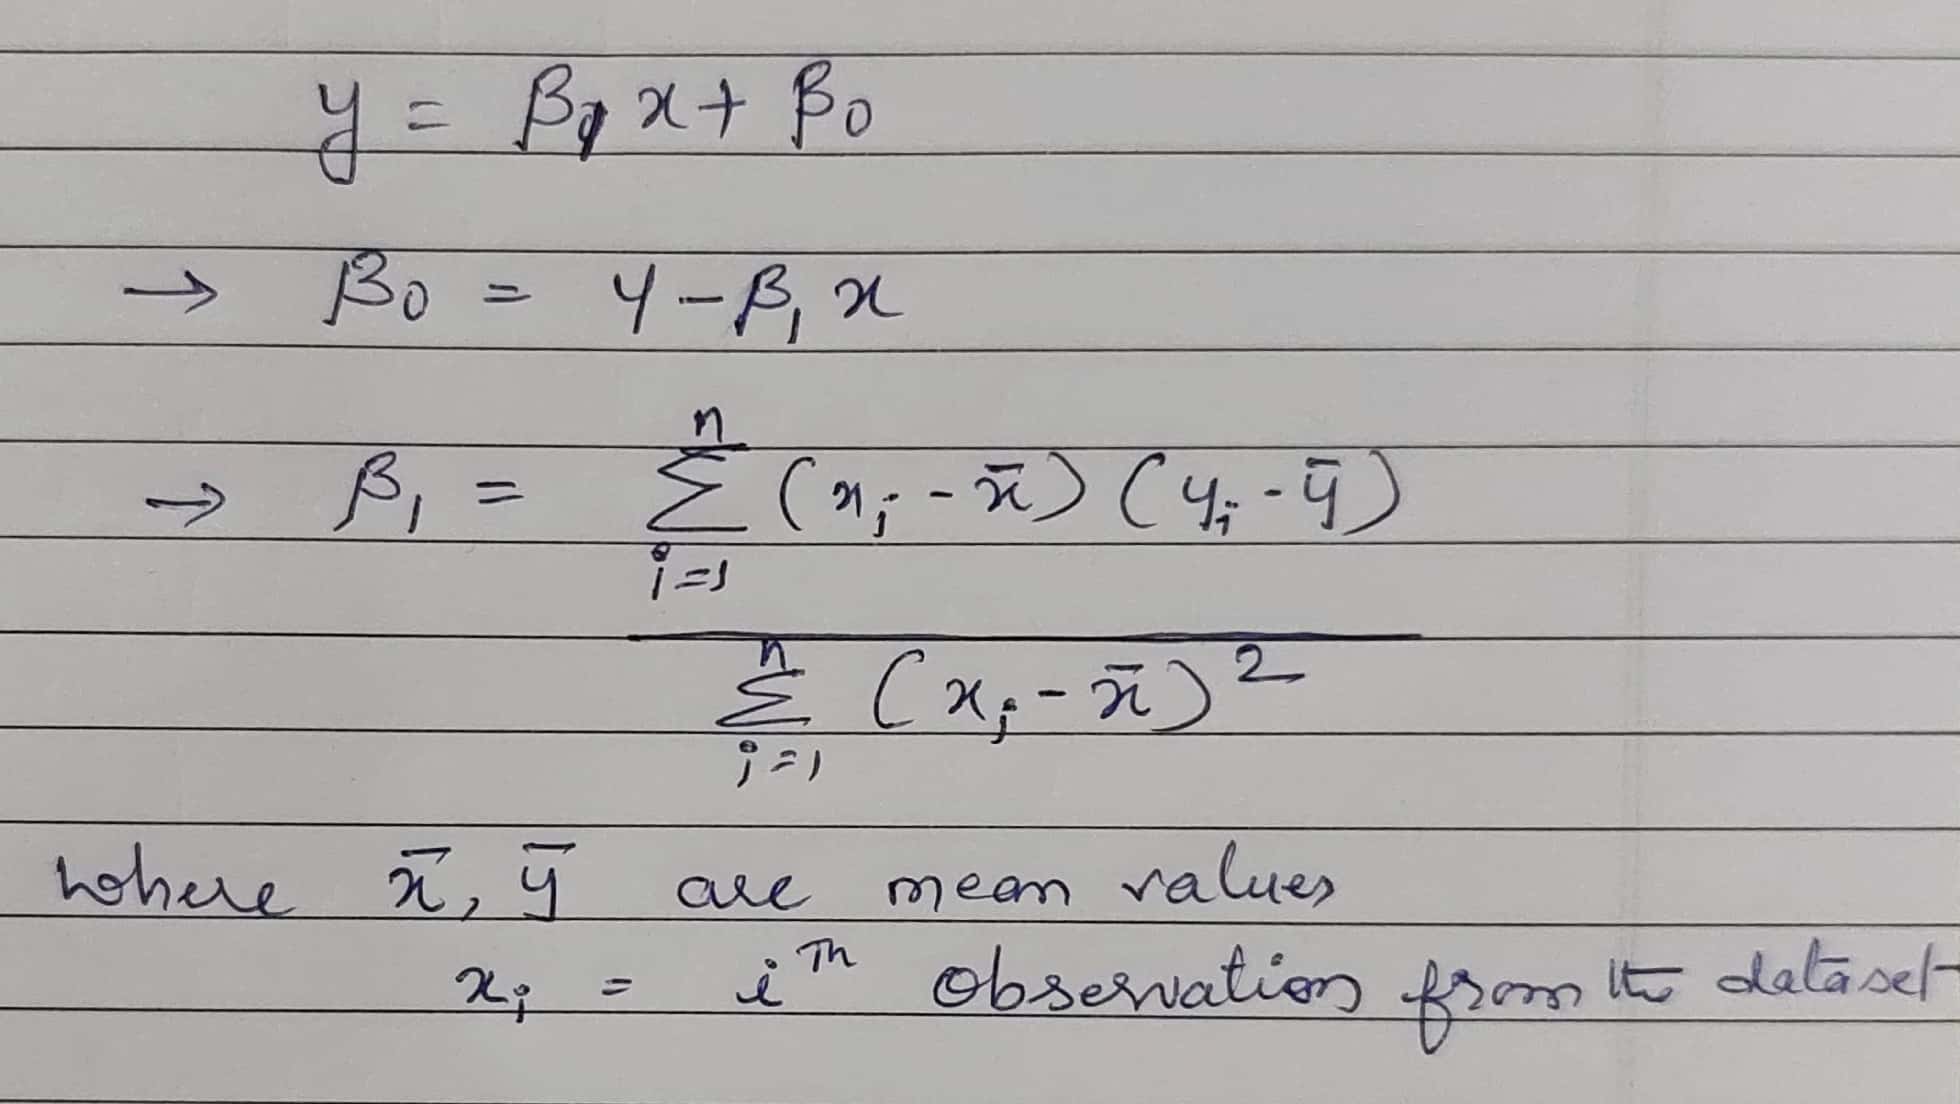 y = β₁ x + β₀
→ β₀ = y - β₁ x
→ β₁ = n Σ i=1 (xᵢ - x̄) (yᵢ - ȳ)
n Σ i=1 (xᵢ - x̄)²
where x̄, ȳ are mean values
xᵢ = iᵀʰ observation from the dataset